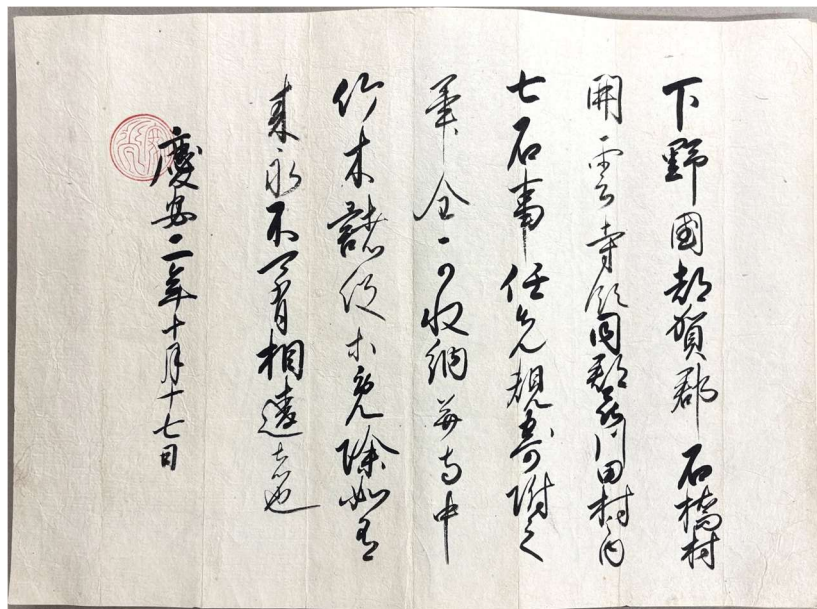 下野國都賀郡石橋村
開雲寺領同郡花田村内
七石事任先規寄附之
訖全可收納并寺中
竹木諸役等免除如有
來永不可有相違者也
慶安二年十月十七日